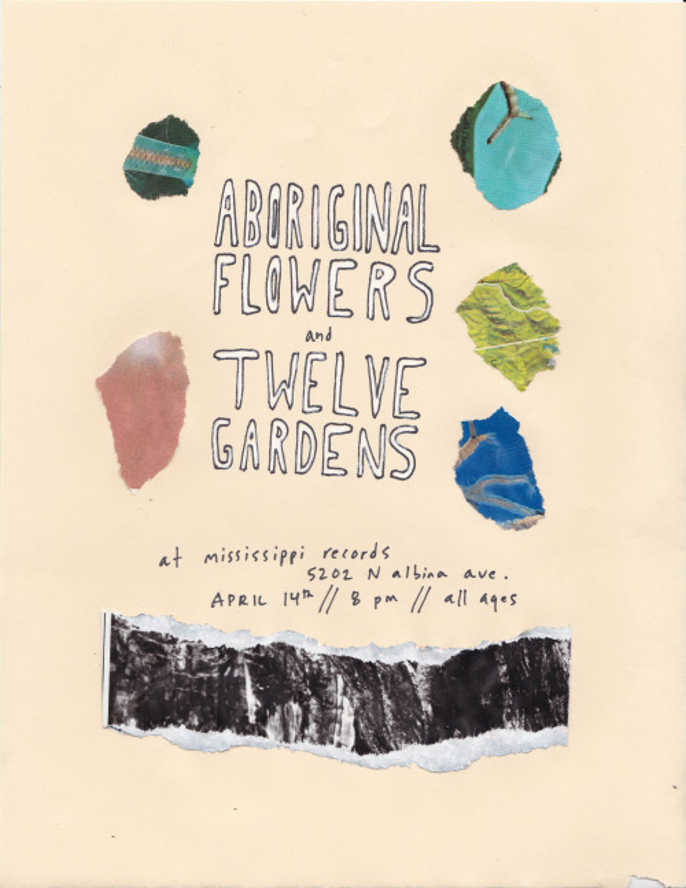 ABORIGINAL
FLOWERS
and
TWELVE
GARDENS
at mississippi records
5202 N albina ave.
APRIL 14th // 8 pm // all ages